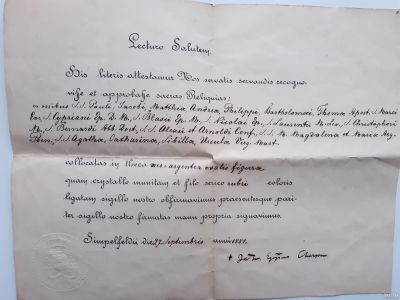 Lectura Salutem,
His literis attestamur Nos servatis servandis recogno-
visse et approbasse sacras Reliquias:
ex ossibus S. S. Pauli, Jacobi, Matthiæ, Andreæ, Philippi, Bartholomæi, Thomæ Apost. S. Marci
Ev. S. Cypriani Ep. D. M. S. Blasii Ep. S. Nicolai Ep. S. Laurentii M. S. Christophori
M. S. Bernardi Abb. Doct. S. S. Alexii et Arnoldi Conf. S. S. M. Magdalena et Maria
S. S. Agatha, Catharina, Sibilla, Ursula Virg. Mart.
collocatas in theca argentea ovalis figuræ
quam crystallo munitam et filo serico rubri coloris
ligatam sigillo nostro obfirmavimus praesentesque pari-
ter sigillo nostro firmatas manu propria signavimus.
Simpelfeldii die 27 Septembris anni 1881.